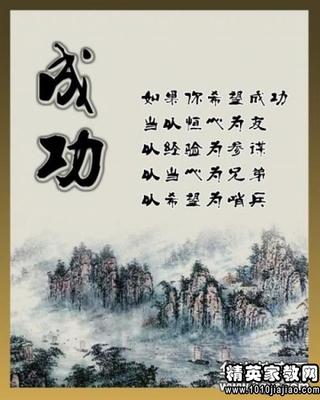 成功
如果你希望成功
当以恒心为友
以经验为参谋
以当心为兄弟
以希望为哨兵
精英家教网
www.1010jiajiao.com